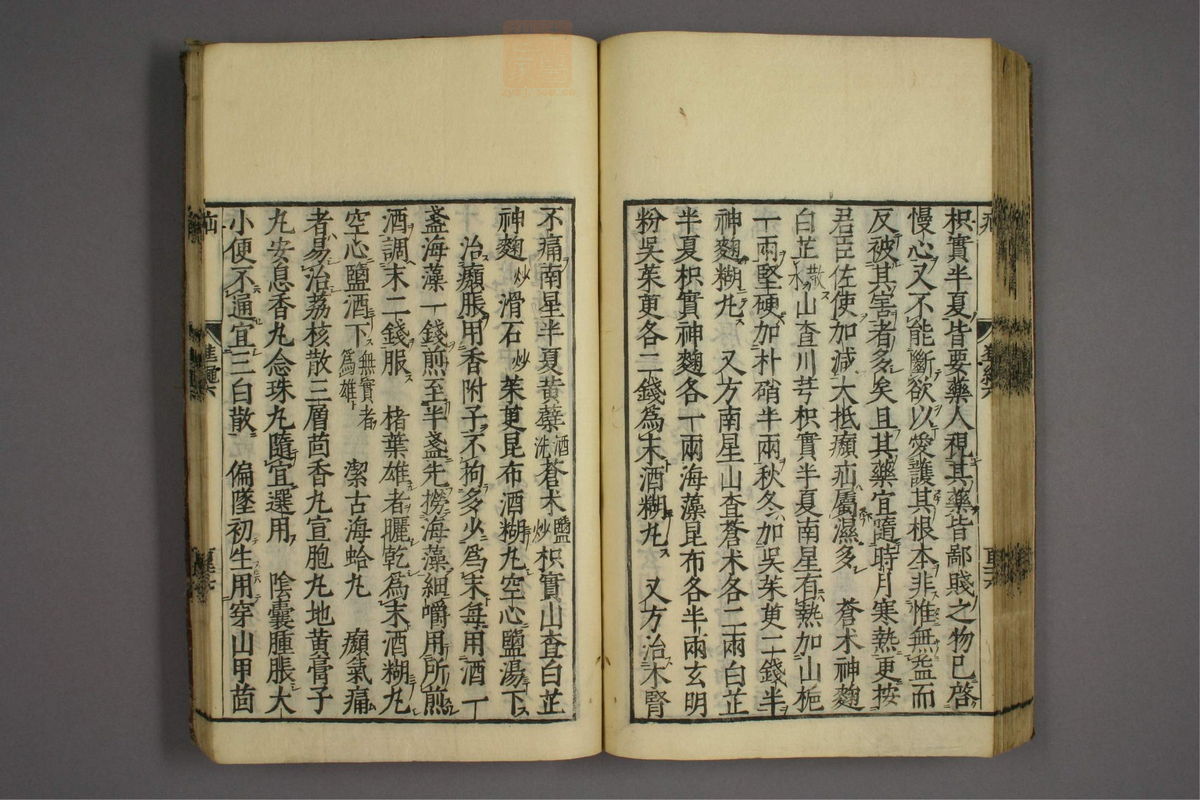 枳實半夏皆要藥人視其藥皆鄙賤之物已啓
慢心又不能斷欲以愛護其根本非惟無益而
反被其害者多矣且其藥宜隨時月寒熱更按
君臣佐使加減大抵㿗疝屬濕多　蒼朮神麴
白芷散水山査川芎枳實半夏南星有熱加山梔
一兩堅硬加朴硝半兩秋冬加吳茱萸二錢半
神麴糊丸　又方南星山査蒼朮各二兩白芷
半夏枳實神麴各一兩海藻昆布各半兩玄明
粉吳茱萸各二錢爲末酒糊丸　又方治木腎
不痛南星半夏黃蘗酒洗蒼朮鹽炒枳實山査白芷
神麴炒滑石炒茱萸昆布酒糊丸空心鹽湯下
治㿗脹用香附子不拘多少爲末每用酒一
盞海藻一錢煎至半盞先撈海藻細嚼用所煎
酒調末二錢服　楮葉雄者曬乾爲末酒糊丸
空心鹽酒下無實者爲雄　潔古海蛤丸　㿗氣痛
者易治荔核散三層茴香丸宣胞丸地黃膏子
丸安息香丸念珠丸隨宜選用　陰囊腫脹大
小便不通宜三白散　偏墜初生用穿山甲茴